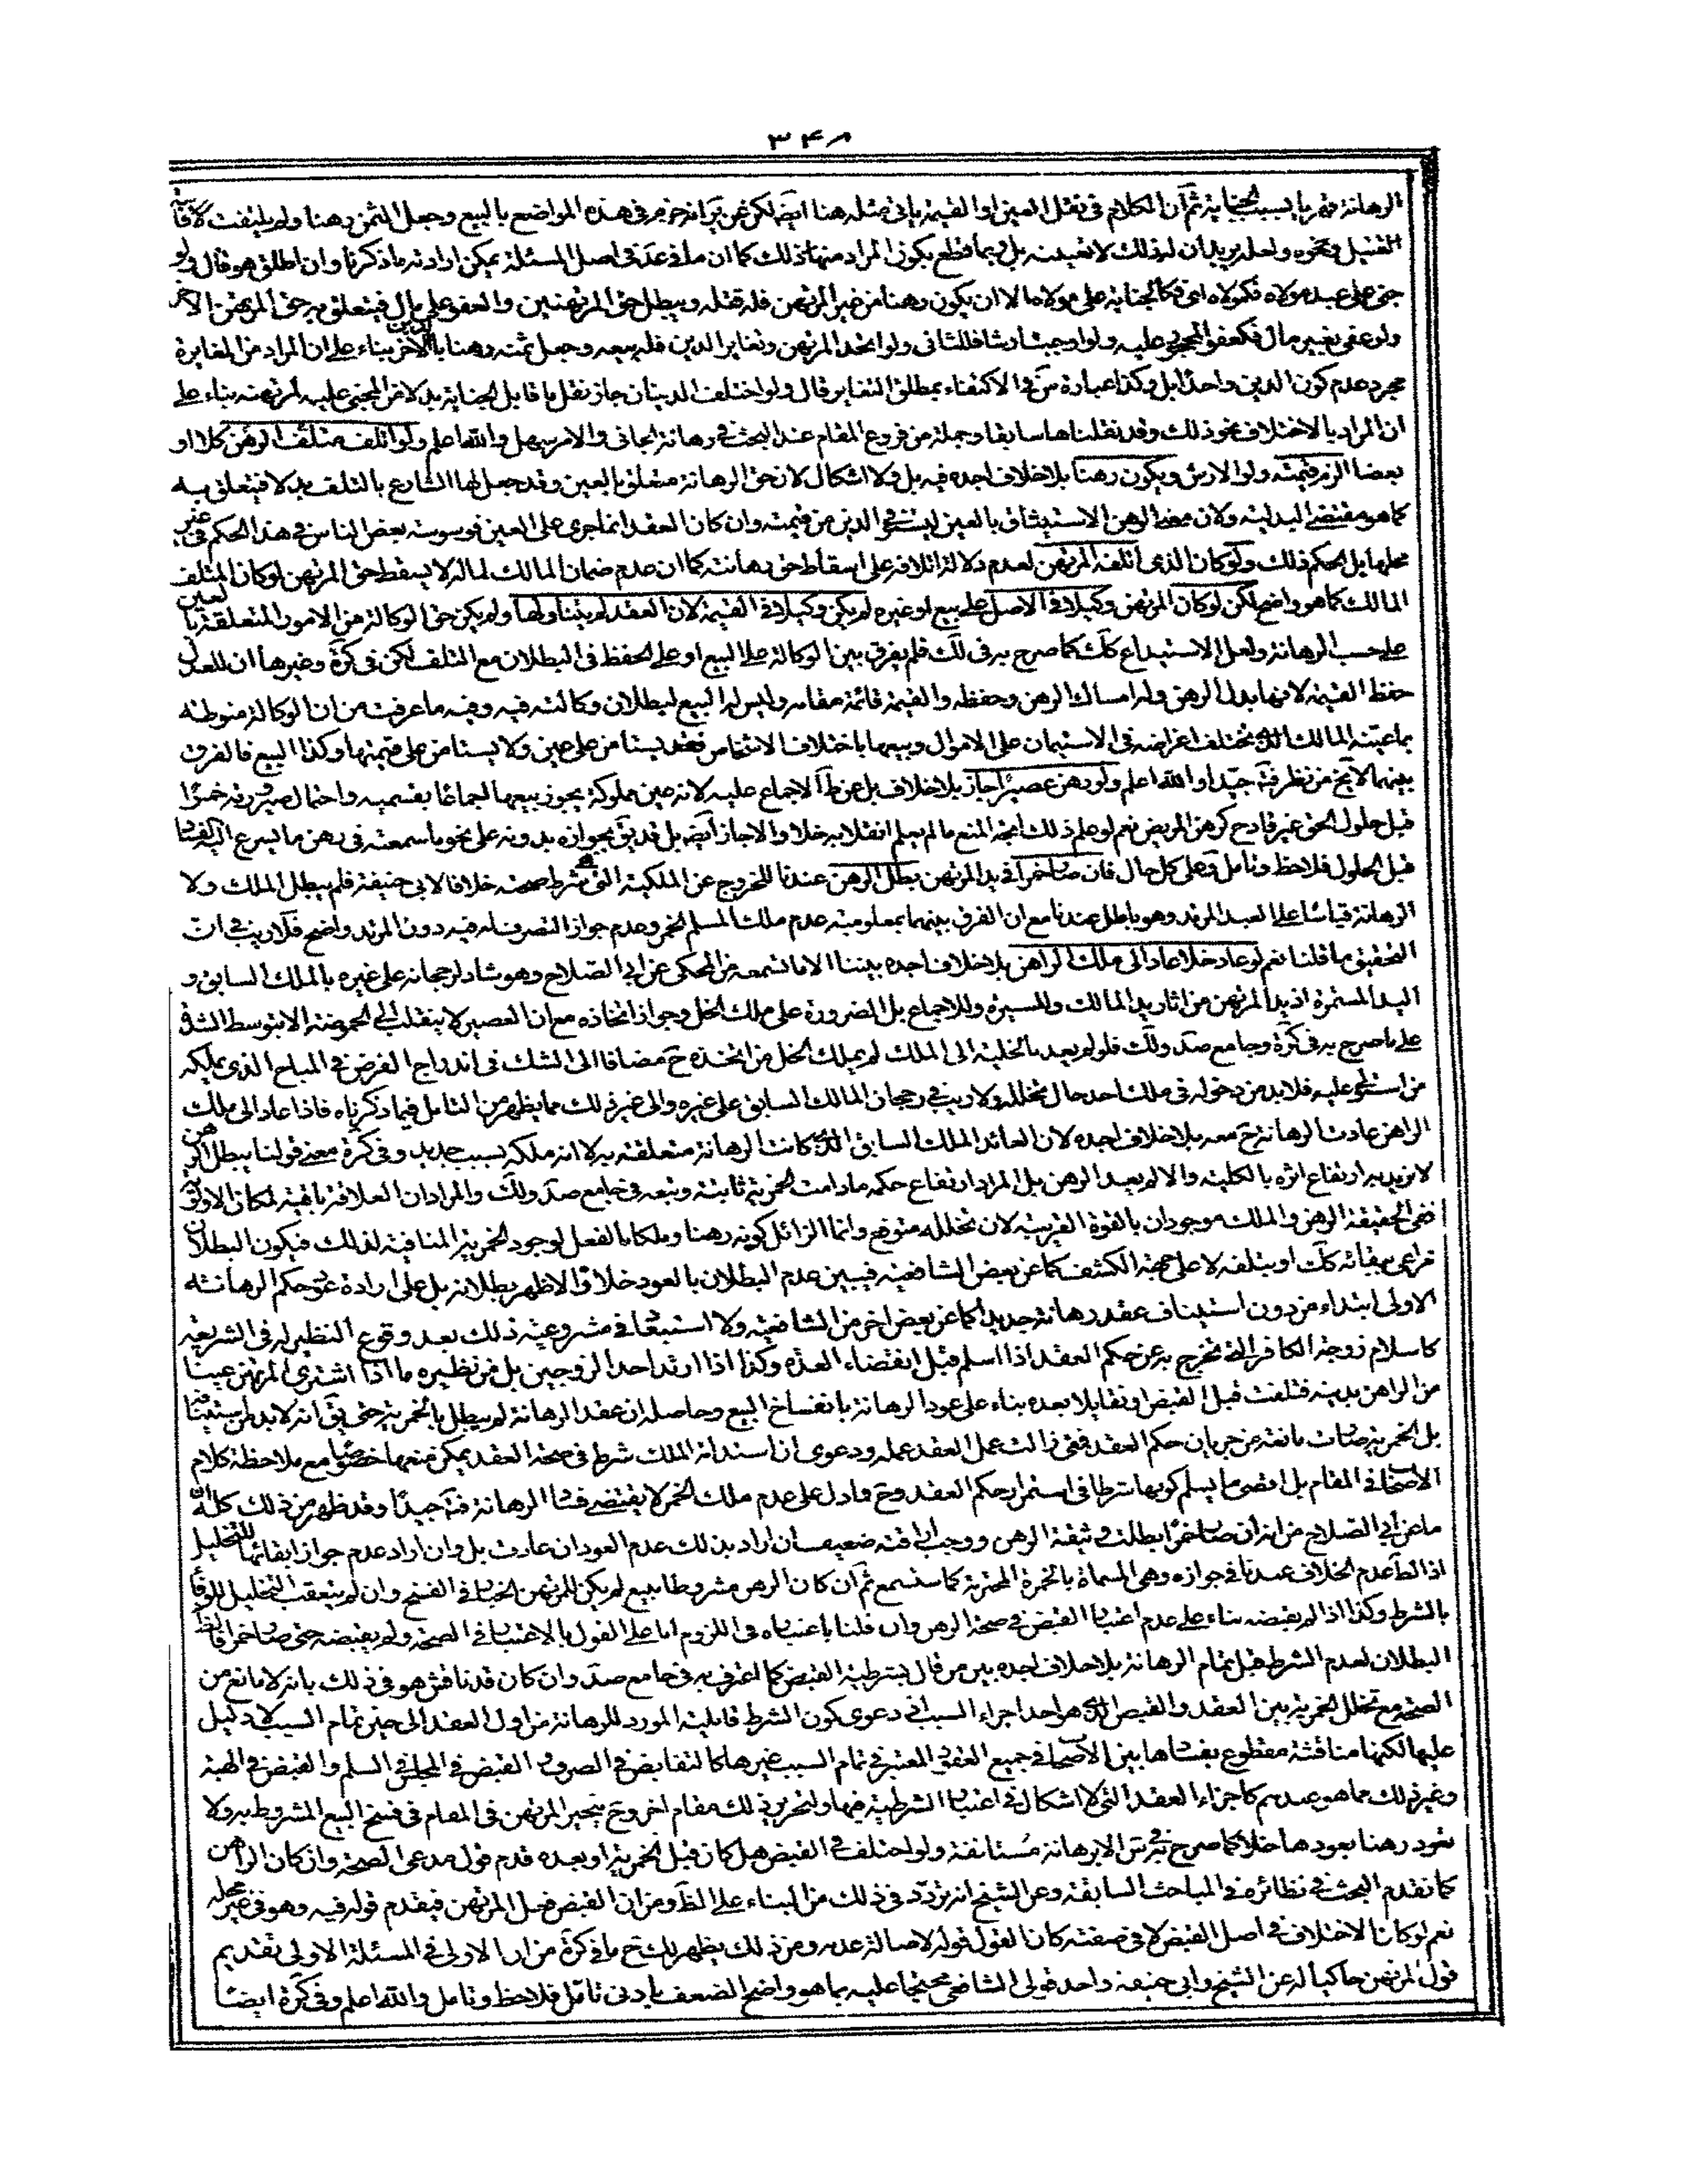 ٣۴٨
الرهانة فيهما بسبب الجناية ثم ان الكلام في نقل العين او القيمة ياتي مثله هنا ايضَ لكن عن يَر انه جزم في هذه المواضع بالبيع وجعل الثمن رهنا ولم يلتفت لاقامة
القتيل ونحوه ولعله يريد ان له ذلك لا تعيينه بل ربما قطع بكون المراد منها ذلك كما ان ما في عَد في اصل المسئلة يمكن ارادته ما ذكرنا وان اطلق هو قال ولو
جنى على عبد مولاه فكمولاه اى فكالجناية على مولاه مالا ان يكون رهنا من غير المرتهن فله قتله ويبطل حق المرتهنين والعفو على مال فيتعلق به حق المرتهن الاخر
ولو عفى بغير مال فكعفو المحجور عليه ولو اوجبت ارشا فللثانى ولو اتحد المرتهن وتغاير الدين فله بيعه وجعل ثمنه رهنا بالدين الاخر بناء على ان المراد من المغايرة
مجرد عدم كون الدين واحدا بل وكذا عبارة سَ في الاكتفاء بمطلق التغاير قال ولو اختلف الدينان جاز نقل ما قابل الجناية بدلا من المجني عليه لمرتهنه بناء على
ان المراد بالاختلاف نحو ذلك وقد نقلناها سابقا وجملة من فروع المقام عند البحث في رهانة الجاني والامر سهل والله اعلم ولو اتلف متلف الرهن كلا او
بعضا الزم قيمته ولو الارش ويكون رهنا بلا خلاف اجده فيه بل ولا اشكال لان حق الرهانة متعلق بالعين وقد جعل لها الشارع بالتلف بدلا فيتعلق به
كما هو مقتضى البدلية ولان معنى الرهن الاستيثاق بالعين ليستوفى الدين من قيمته وان كان العقد انما جرى على العين فوسوسة بعض الناس في هذا الحكم في غير
محلها بل الحكم ذلك ولو كان الذى اتلفه المرتهن لعدم دلالة اتلافه على اسقاط حق رهانته كما ان عدم ضمان المالك لماله لا يسقط حق المرتهن لو كان المتلف
المالك كما هو واضح لكن لو كان المرتهن وكيلا في الاصل على بيع او غيره لم يكن وكيلا في القيمة لان العقد لم يتناولها ولم يكن حق الوكالة من الامور المتعلقة بالعين
على حسب الرهانة ولعل الاستيداع كك كما صرح به في لك فلم يفرق بين الوكالة على البيع او على الحفظ في البطلان مع التلف لكن في كرة وغيرها ان للعدل
حفظ القيمة لانها بدل الرهن وله امساك الرهن وحفظه والقيمة قائمة مقامه وليس له البيع لبطلان وكالته فيه وفيه ما عرفت من ان الوكالة منوطة
بما عينه المالك الذى تختلف اغراضه في الاستيمان على الاموال وبيعها باختلاف الاشخاص فقد يستامن على عين ولا يستامن على قيمتها وكذا البيع فالفرق
بينهما لا يخ من نظر فتَ جيدا والله اعلم ولو رهن عصيرا جاز بلا خلاف بل عن ظَ الاجماع عليه لانه عين مملوكة يجوز بيعها اجماعا بقسميه واحتمال صيرورته خمرا
قبل حلول الحق غير قادح كرهن المريض نعم لو علم ذلك اتجه المنع ما لم يعلم انقلابه خلا والا جاز ايضَ بل قد يقَ بجوازه بدونه على نحو ما سمعته في رهن ما يسرع اليه الفساد
قبل الحلول فلاحظ وتامل وعلى كل حال فان صار خمرا في يد المرتهن بطل الرهن عندنا للخروج عن الملكية التى هى شرط صحته خلافا لابي حنيفة فلم يبطل الملك ولا
الرهانة قياسا على العبد المرتد وهو باطل عندنا مع ان الفرق بينهما بمعلومية عدم ملك المسلم الخمر وعدم جواز التصرف له فيه دون المرتد واضح فلا ريب في ان
التحقيق ما قلنا نعم لو عاد خلا عاد الى ملك الراهن بلا خلاف اجده بيننا الا ما تسمعه من المحكى عن ابى الصلاح وهو شاد لرجحانه على غيره بالملك السابق و
اليد المستمرة اذ يد المرتهن من اثار يد المالك وللسيرة وللاجماع بل الضرورة على ملك الخل وجواز اتخاذه مع ان العصير لا ينقلب الى الحموضة الا بتوسط الشدة
على ما صرح به في كرة وجامع صَد ولَك فلو لم يعد بالخلية الى الملك لم يملك الخل من اتخذه ح مضافا الى الشك في اندراج الفرض في المباح الذى يملكه
من استولى عليه فلا بد من دخوله في ملك احد حال تخلله ولا ريب في رجحان المالك السابق على غيره والى غير ذلك مما يظهر من التامل فيما ذكرناه فاذا عاد الى ملك
الراهن عادت الرهانة ح معه بلا خلاف اجده لان العائد الملك السابق الذى كانت الرهانة متعلقة به لا انه ملكه بسبب جديد وفى كرة معنى قولنا يبطل الرهن
لا نريد به ارتفاع اثره بالكلية والا لم يعد الرهن بل المراد ارتفاع حكمه ما دامت الخمرية ثابتة وتبعه في جامع صَد ولَك والمراد ان العلاقة باقية لمكان الاولوية
ففى الحقيقة الرهن والملك موجودان بالقوة القريبة لان تخلله متوقع وانما الزائل كونه رهنا وملكا بالفعل لوجود الخمرية المنافية لذلك فيكون البطلان
مراعى ببقائه كك او بتلفه لا على جهة الكشف كما عن بعض الشافعية فيبين عدم البطلان بالعود خلا والا ظهر بطلانه بل على ارادة عود حكم الرهانة
الاولى ابتداء من دون استيناف عقد رهانة جديد كما عن بعض اخر من الشافعية ولا استبعاد في مشروعية ذلك بعد وقوع النظير له في الشريعة
كاسلام زوجة الكافر الذى تخرج به عن حكم العقد اذا اسلم قبل انقضاء العدة وكذا اذا ارتد احد الزوجين بل من نظيره ما اذا اشترى المرتهن عينا
من الراهن بدينه فتلفت قبل القبض او تقايلا بعده بناء على عود الرهانة بانفساخ البيع وحاصله ان عقد الرهانة لم يبطل بالخمرية حتى يقَ انه لا بد من استيناف
بل الخمرية صارت مانعة عن جريان حكم العقد فمتى زالت عمل العقد عمله ودعوى ان استدامة الملك شرط في صحة العقد يمكن منعها خصوصا مع ملاحظة كلام
الاصحاب في المقام بل اقصى ما يسلم كونها شرطا في استمرار حكم العقد وح فما دل على عدم ملك الخمر لا يقتضى فساد الرهانة فتَ جيدا وقد ظهر من ذلك كله ان
ما عن ابى الصلاح من انه ان صار خمرا بطلت وثيقة الرهن ووجب اراقته ضعيف ان اراد بذلك عدم العود ان عادت بل وان اراد عدم جواز ابقائها للتخليل
اذ الظَ عدم الخلاف عندنا في جوازه وهى المسماة بالخمرة المحترمة كما ستسمع ثم ان كان الرهن مشروطا ببيع لم يكن للمرتهن الخيار في الفسخ وان لم يتعقب التخليل للوفاء
بالشرط وكذا اذا لم يقبضه بناء على عدم اعتبار القبض في صحة الرهن وان قلنا باعتباره في اللزوم اما على القول بالاعتبار في الصحة ولم يقبضه حتى صار خمرا فالظَ
البطلان لعدم الشرط قبل تمام الرهانة بلا خلاف اجده بين من قال بشرطية القبض كما اعترف به في جامع صَد وان كان قد ناقش هو في ذلك بانه لا مانع من
الصحة مع تخلل الخمرية بين العقد والقبض الذى هو احد اجزاء السبب اذ دعوى كون الشرط قابلية المورد للرهانة من اول العقد الى حين تمام السبب لا دليل
عليها لكنها مناقشة مقطوع بفسادها بين الاصحاب في جميع العقود المعتبر في تمام السبب غيرها كالتقابض في الصرف والقبض في المجلس في السلم والقبض في الهبة
وغير ذلك مما هو عندهم كاجزاء العقد التى لا اشكال في اعتبار الشرطية فيها ولتحرير ذلك مقام اخر وح يتخير المرتهن في المقام في فسخ البيع المشروط به ولا
تعود رهنا بعودها خلا كما صرح به في س الا برهانة مستانفة ولو اختلف في القبض هل كان قبل الخمرية او بعده قدم قول مدعى الصحة وان كان الراهن
كما تقدم البحث في نظائره في المباحث السابقة وعن الشيخ انه تردد في ذلك من البناء على الظَ ومن ان القبض فعل المرتهن فيقدم قوله فيه وهو في غير محله
نعم لو كان الاختلاف في اصل القبض لا في صفته كان القول قوله لاصالة عدمه ومن ذلك يظهر لك ح ما في كرة من ان الاولى في المسئلة الاولى تقديم
قول المرتهن حاكيا له عن الشيخ وابى حنيفة واحد قولى الشافعى محتجا عليه بما هو واضح الضعف بادنى تامل فلاحظ وتامل والله اعلم وفى كرة ايضا